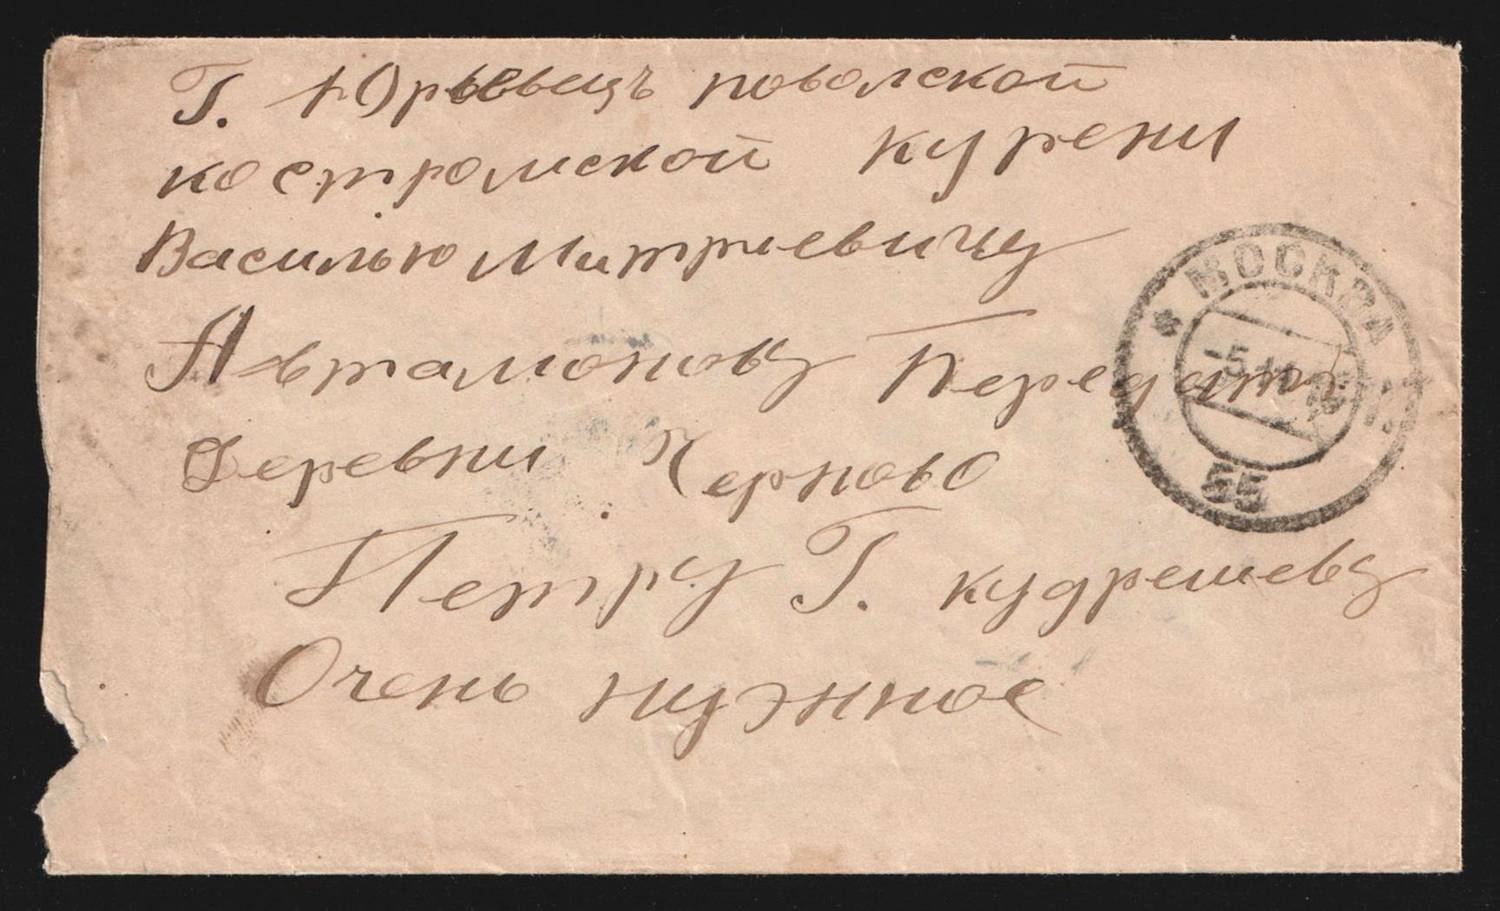 Г. Юрьевецъ поволской
костромской курени
Василью Митриевичу
Автамонову Передать
Деревни Черново
Петру Г. кудрешеву
Очень нужное
* МОСКВА
-5.
55